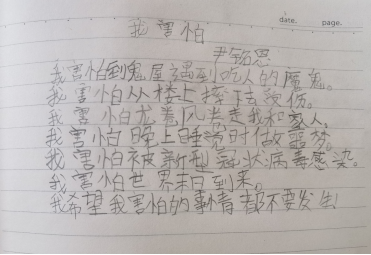 date.    page.
我害怕
尹铭恩
我害怕到鬼屋遇到吃人的魔鬼。
我害怕从楼上摔下去受伤。
我害怕龙卷风卷走我和家人。
我害怕晚上睡觉时做噩梦。
我害怕被新型冠状病毒感染。
我害怕世界末日到来。
我希望我害怕的事情都不要发生!